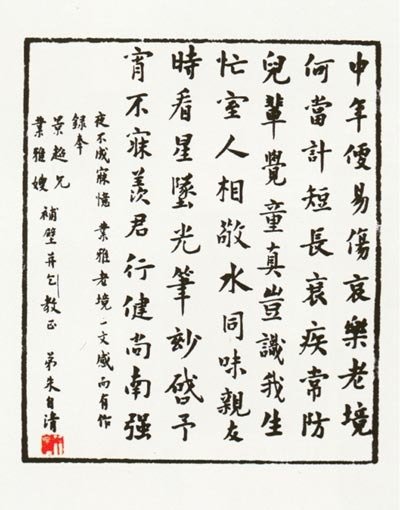 中年便易傷哀樂老境
何當計短長衰疾常防
兒輩覺童真豈識我生
忙室人相敬水同味親友
時看星墜光筆妙啓予
宵不寐羨君行健尚南强
夜不成寐憶 業雅老境一文感而有作
錄奉
景超兄
業雅嫂
補壁并乞教正 弟朱自清